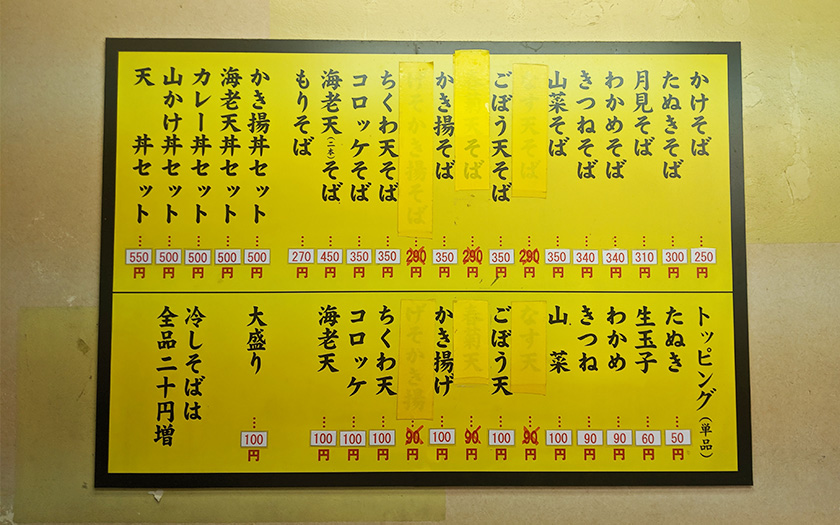 かけそば 250円
たぬきそば 300円
月見そば 310円
わかめそば 340円
きつねそば 340円
山菜そば 350円
なす天そば 290円
ごぼう天そば 350円
春菊天そば 290円
かき揚そば 350円
げそかき揚そば 290円
ちくわ天そば 350円
コロッケそば 350円
海老天(二本)そば 450円
もりそば 270円
かき揚丼セット 500円
海老天丼セット 500円
カレー丼セット 500円
山かけ丼セット 500円
天 丼セット 550円
トッピング(単品)
たぬき 50円
生玉子 60円
わかめ 90円
きつね 90円
山 菜 100円
なす天 90円
ごぼう天 100円
春菊天 90円
かき揚げ 100円
げそかき揚 90円
ちくわ天 100円
コロッケ 100円
海老天 100円
大盛り 100円
冷しそばは
全品二十円増